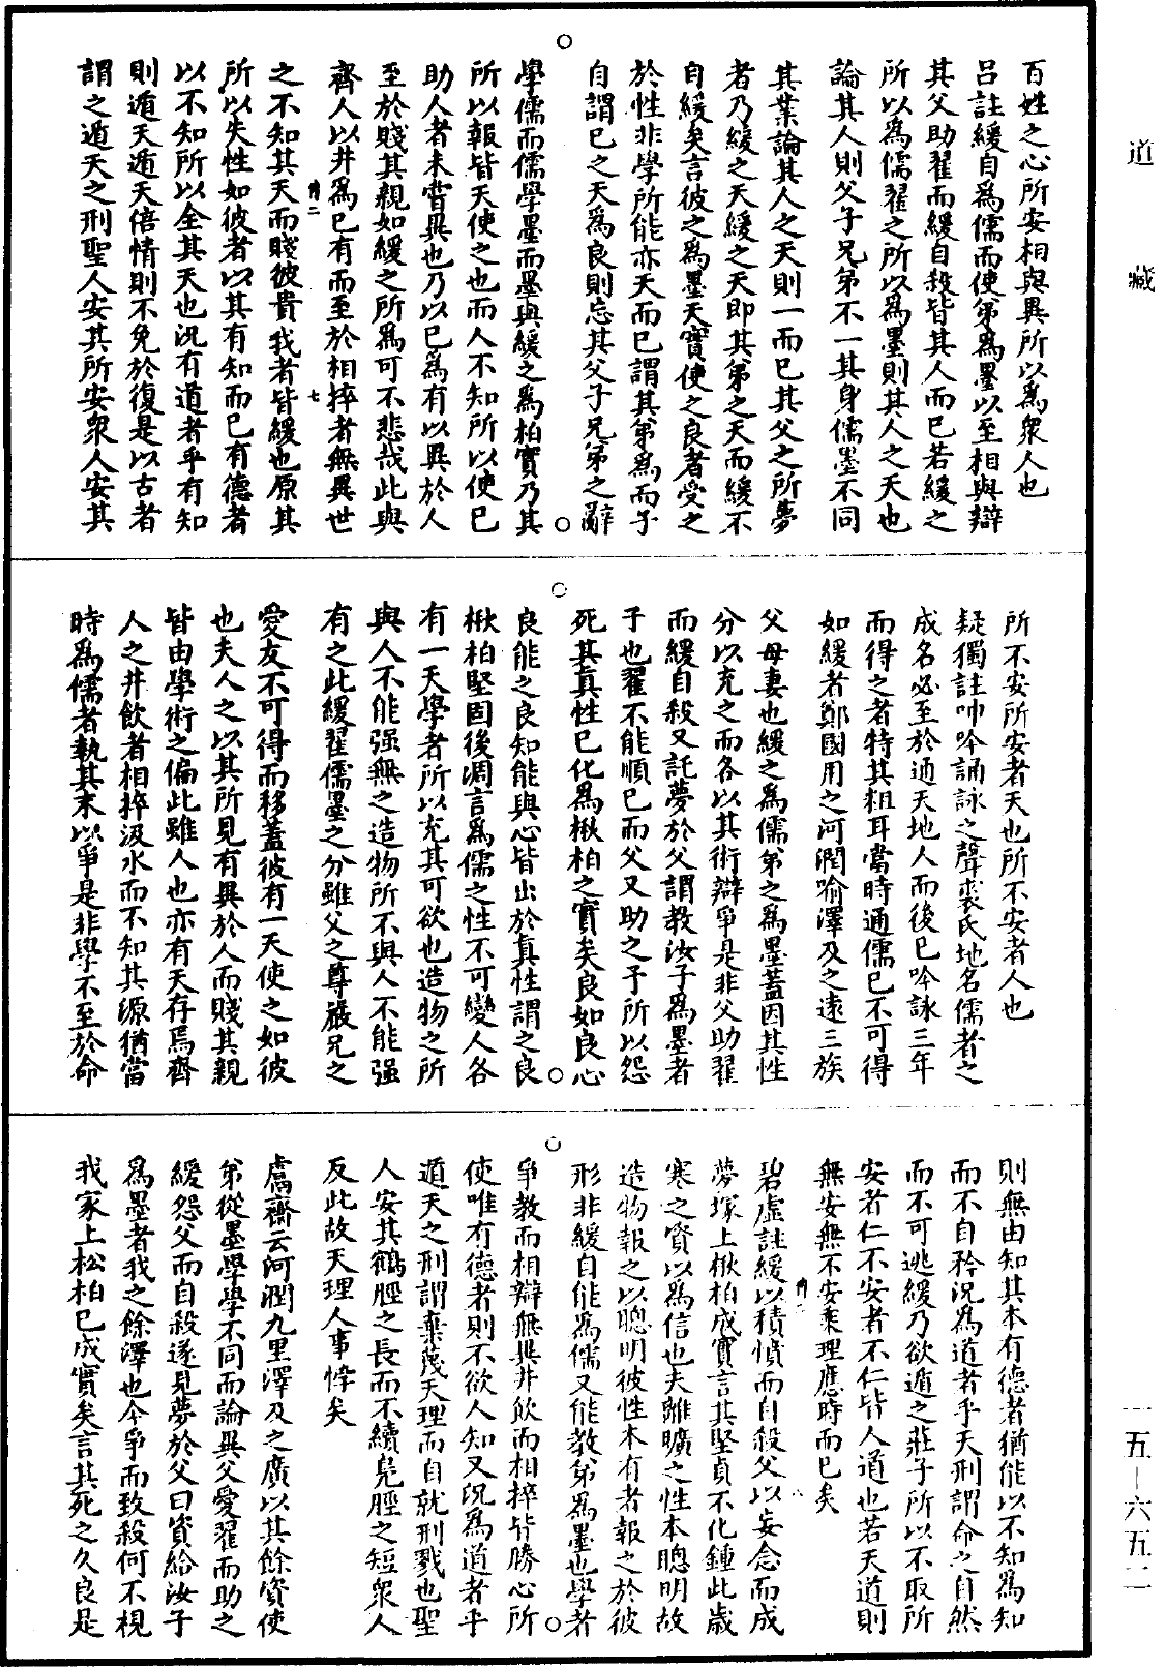 道藏
百姓之心所安相與異所以為衆人也
呂註緩自為儒而使弟為墨以至相與辯
其父助翟而緩自殺皆其人而已若緩之
所以為儒翟之所以為墨則其人之天也
論其人則父子兄弟不一其身儒墨不同
其業論其人之天則一而已其父之所夢
者乃緩之天緩之天即其弟之天而緩不
自緩矣言彼之為墨天實使之良者受之
於性非學所能亦天而已謂其弟為而子
自謂已之天為良則忘其父子兄弟之辭
學儒而儒學墨而墨與緩之為柏實乃其
所以報皆天使之也而人不知所以使已
助人者未嘗異也乃以已為有以異於人
至於賤其親如緩之所為可不悲哉此與
齊人以井為已有而至於相捽者無異世
之不知其天而賤彼貴我者皆緩也原其
所以失性如彼者以其有知而已有德者
以不知所以全其天也況有道者乎有知
則遁天遁天倍情則不免於復是以古者
謂之遁天之刑聖人安其所安衆人安其
所不安所安者天也所不安者人也
疑獨註呻吟誦詠之聲裘氏地名儒者之
成名必至於通天地人而後已吟詠三年
而得之者特其粗耳當時通儒已不可得
如緩者鄭國用之河潤喻澤及之遠三族
父母妻也緩之為儒弟之為墨蓋因其性
分以充之而各以其術辯爭是非父助翟
而緩自殺又託夢於父謂教汝子為墨者
子也翟不能順已而父又助之予所以怨
死其真性已化為楸柏之實矣良如良心
良能之良知能與心皆出於真性謂之良
楸柏堅固後凋言為儒之性不可變人各
有一天學者所以充其可欲也造物之所
與人不能强無之造物所不與人不能强
有之此緩翟儒墨之分雖父之尊嚴兄之
愛友不可得而移蓋彼有一天使之如彼
也夫人之以其所見有異於人而賤其親
皆由學術之偏此雖人也亦有天存焉齊
人之井飲者相捽汲水而不知其源猶當
時為儒者執其末以爭是非學不至於命
則無由知其本有德者猶能以不知為知
而不自矜況為道者乎天刑謂命之自然
而不可逃緩乃欲遁之莊子所以不取所
安者仁不安者不仁皆人道也若天道則
無安無不安乘理應時而已矣
碧虛註緩以積憤而自殺父以妄念而成
夢塚上楸柏成實言其堅貞不化鍾此歲
寒之質以為信也夫離曠之性本聰明故
造物報之以聰明彼性本有者報之於彼
形非緩自能為儒又能教弟為墨也學者
爭教而相辯無異井飲而相捽皆勝心所
使唯有德者則不欲人知又況為道者乎
遁天之刑謂棄蔑天理而自就刑戮也聖
人安其鶴脛之長而不續鳧脛之短衆人
反此故天理人事悖矣
鬳齋云河潤九里澤及之廣以其餘資使
弟從墨學學不同而論異父愛翟而助之
緩怨父而自殺遂見夢於父曰資給汝子
為墨者我之餘澤也今爭而致殺何不視
我冢上松柏已成實矣言其死之久良是
一五—六五二